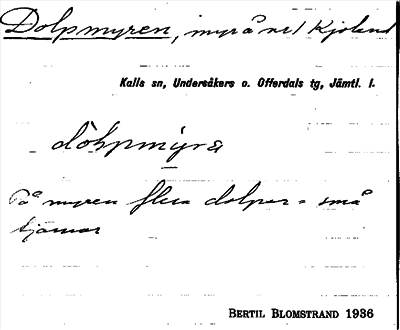 Dolpmyren, myrå nr 1 Kjoland
Kalls sn, Undersåkers o. Offerdals tg, Jämtl. l.
På myren flera dolper = små
tjärnar
BERTIL BLOMSTRAND 1936